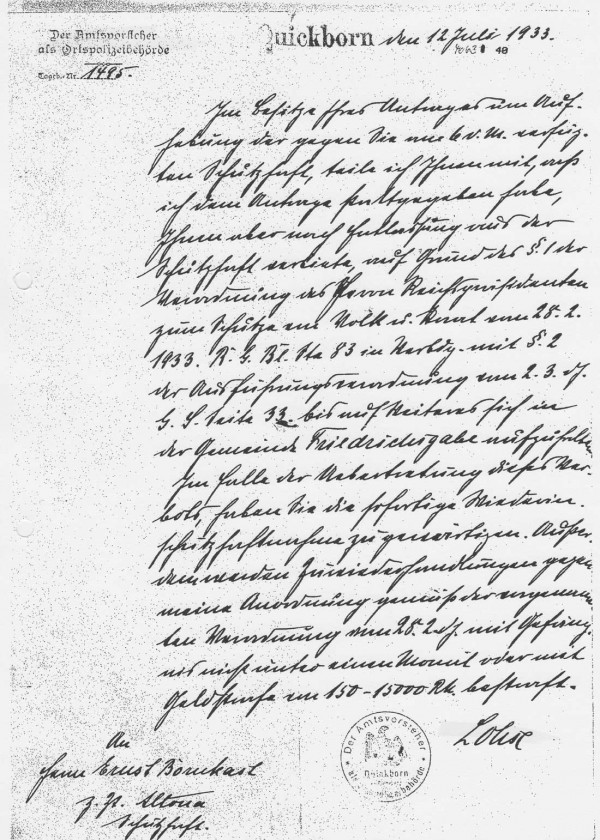 Der Amtsvorsteher
als Ortspolizeibehörde
Tageb.-Nr. 1495.
Quickborn den 12 Juli 1933.
Im Besitze Ihres Antrages um Auf-
hebung der gegen Sie am 6 d. M. verfüg-
ten Schutzhaft, teile ich Ihnen mit, daß
ich dem Antrage stattgegeben habe,
Ihnen aber nach Entlassung aus der
Schutzhaft verbiete, auf Grund des §. 1 der
Verordnung des Herrn Reichspräsidenten
zum Schutze von Volk u. Staat vom 28. 2.
1933. R. G. Bl. Sta 83 in Verbdg. mit §. 2
der Ausführungsverordnung vom 2. 3. d. J.
G. S. Seite 33. bis auf Weiteres sich in
der Gemeinde Friedrichsgabe aufzuhalten
Im Falle der Uebertretung dieses Ver-
bots, haben Sie die sofortige Wiederin-
schutzhaftnahme zu gewärtigen. Außer-
dem werden Zuwiederhandlungen gegen
meine Anordnung gemäß der vorgenann-
ten Verordnung vom 28. 2. d. J. mit Gefäng-
nis nicht unter einen Monat oder mit
Geldstrafe von 150-15000 Rk. bestraft.
Lohse
Der Amtsvorsteher
Quickborn
An
Herrn Ernst Bornkast
z. Zt. Altona
Schutzhaft.